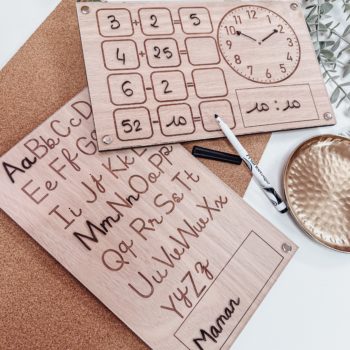 3 + 2 = 5
4 + 25 =
6 - 2 =
52 - 10 =
10 : 10
Aa Bb Cc Dd
Ee Ff Gg Hh
Ii Jj Kk Ll
Mm Nn Oo Pp
Qq Rr Ss Tt
Uu Vv Ww Xx
Yy Zz
Maman